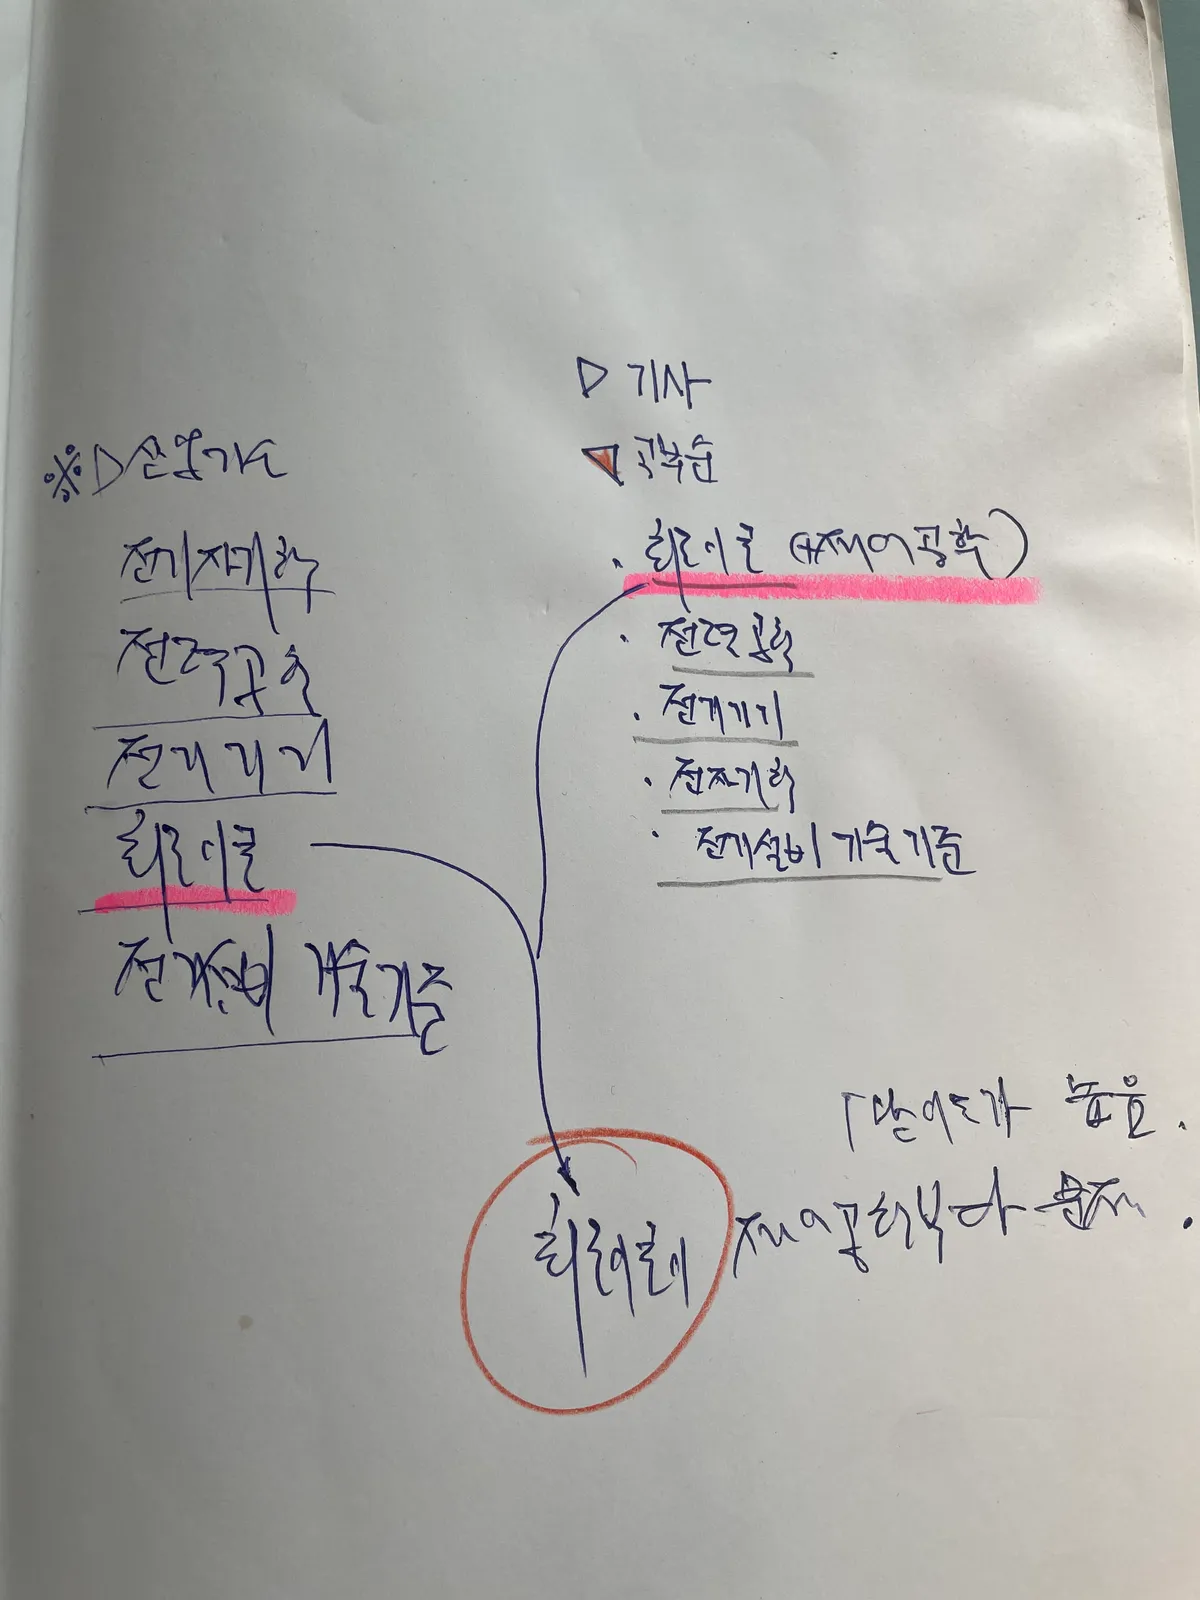 ▷ 기사
◀ 공부순
· 회로이론 (+제어공학)
· 전력공학
· 전기기기
· 전자기학
· 전기설비 기술기준
※ ▷ 산업기사
전기자기학
전력공학
전기기기
회로이론
전기설비 기술기준
난이도가 높음.
회로이론이 제어공학보다 문제.